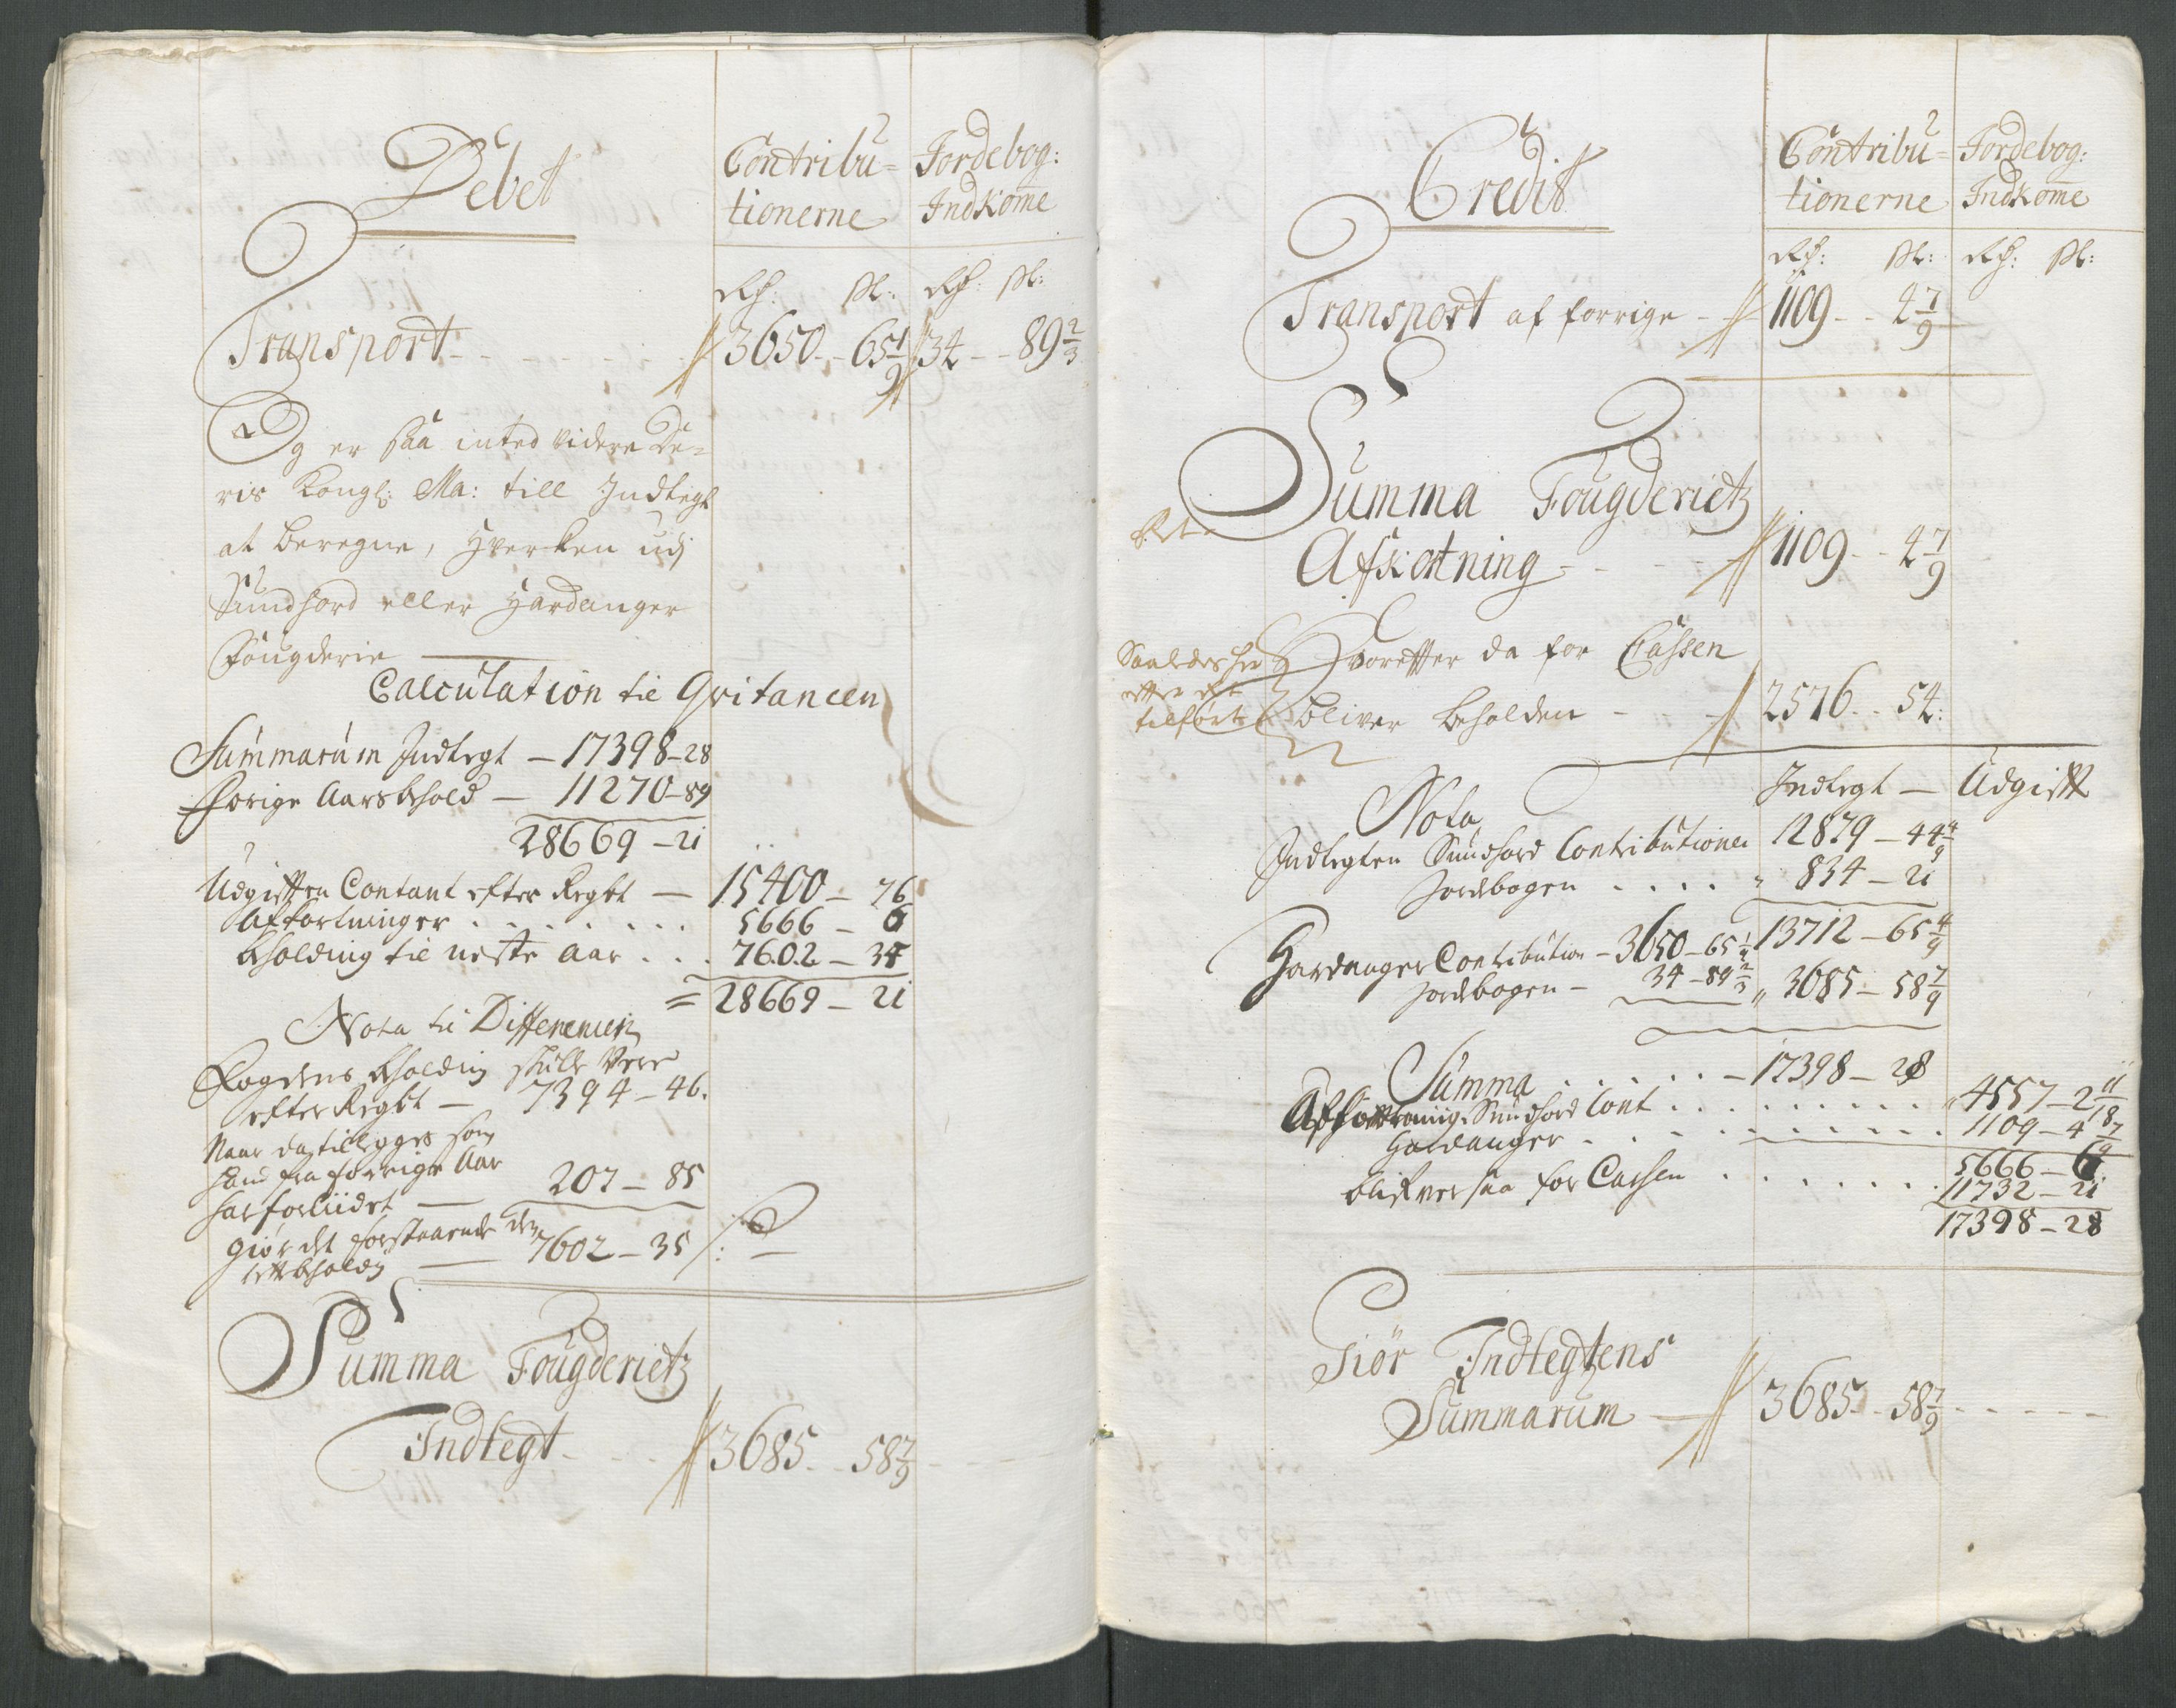 Debet
Contribu-
tionerne
Jordebog:
Indkome
Rd: sk: Rd: sk:
Transport - - - 3650 - 65 1/9 34 - 89 2/3
Og er saa inted videre De-
ris Kongl: Ma: till Indtegt
at beregne, Hverken udj
Sundhord eller Hardanger
Fougderie
Calculation til Qvitancen
Summarum Indtegt - 17398 - 28
Forige Aars behold - 11270 - 89
28669 - 21
Udgifften Contant efter Regbt - 15400 - 76
Affortninger . . . . . . 5666 - 6
Beholding til neste Aar . . . 7602 - 35
= 28669 - 21
Nota til Differencen
Fogdens beholding skulle Vere
efter Regbt - 7394 - 46.
Naar da tillegges som
hand fra forrige Aar
har 207 - 85
Giør det forstaaende den
beholdg - 7602 - 35
Summa Fougderietz
Indtegt - - - 3685 - 58 7/9
Credit
Contribu-
tionerne
Jordebog:
Indkome
Rd: sk: Rd: sk:
Transport af forrige - - 1109 - - 4 7/9
Summa Fougderietz
Afkortning - - - 1109 - - 4 7/9
Saaledes her
efter
tilført
Hvorefter da for Cassen
bliver beholden - - 2576 - - 54:
Nota
Indtegt - Udgifft
Indtegten Sundhord Contributioner 12879 - 44 4/9
Jordbogen . . . . " 834 - 21
13712 - 65 4/9
Hardanger Contribution - 3650 - 65 1/9
Jordbogen - 34 - 89 2/3 " 3685 - 58 7/9
Summa . . . . - 17398 - 28
Affortning. Sundhord Cont . . . . . . . . 4557 - 2 11/18
Hardanger . . . . . . . . 1109 - 4 7/9
5666 - 6
blifver saa for Cassen . . . . . . . 11732 - 21
17398 - 28
Giør Indtegtens
Summarum - 3685 - 58 7/9 - - - - -